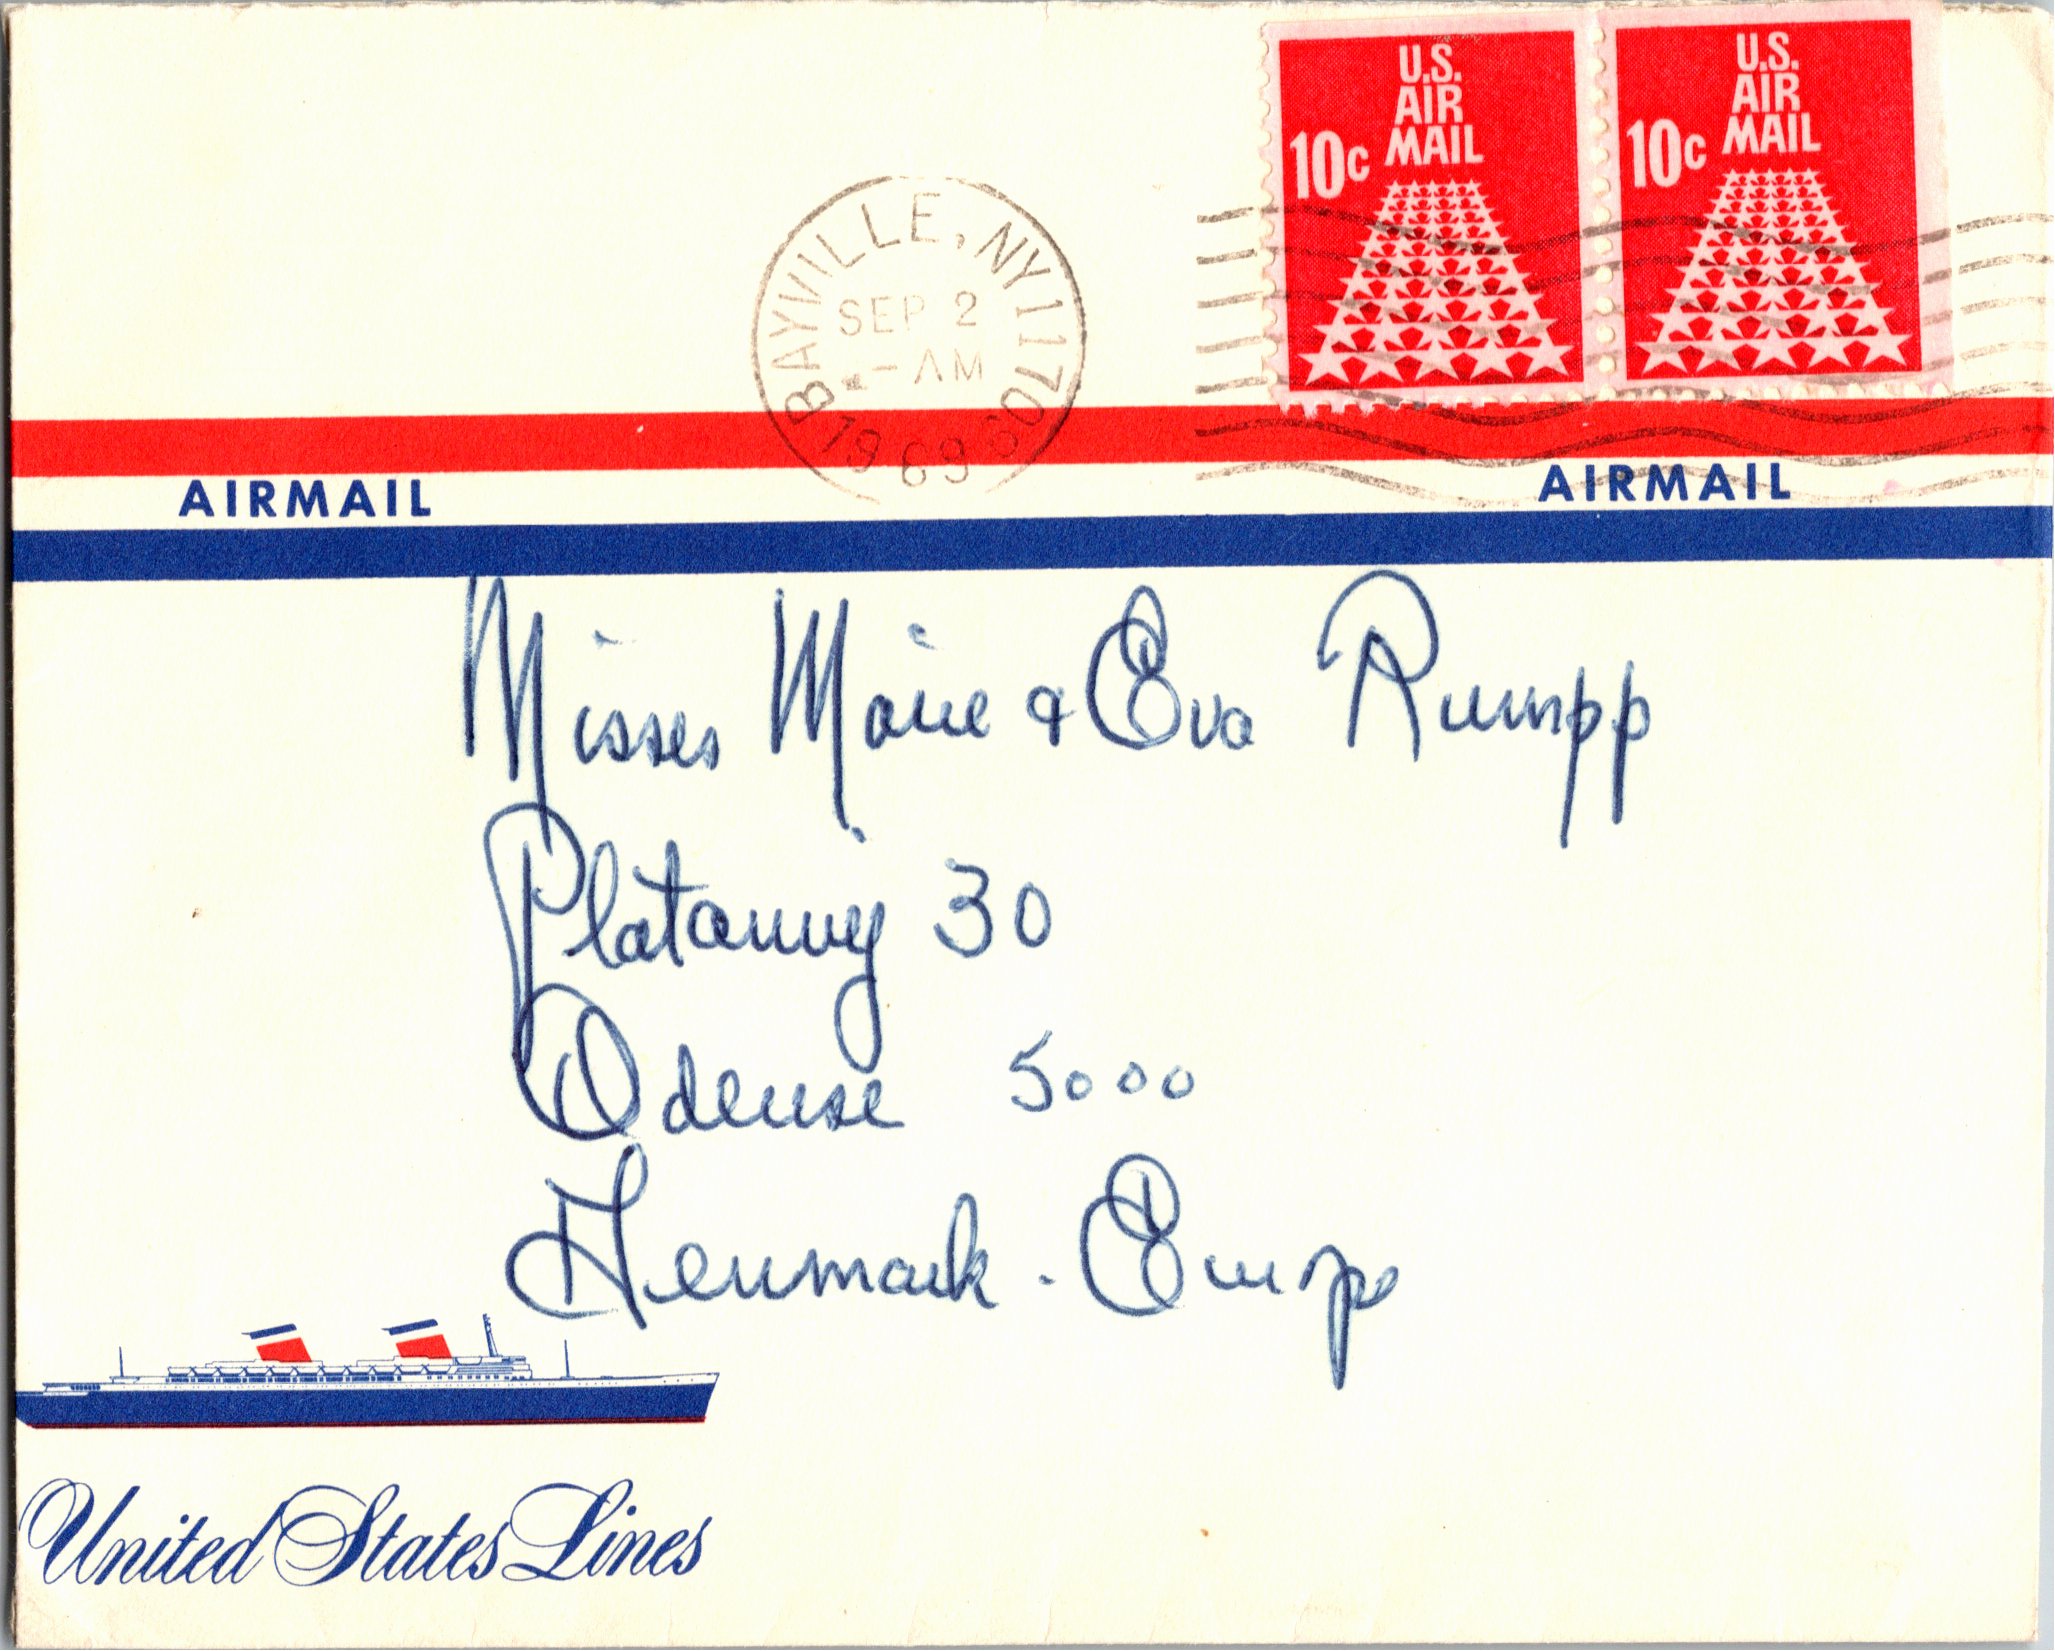 U.S.
AIR
MAIL
10c
U.S.
AIR
MAIL
10c
BAYVILLE, NY 11709
SEP 2
AM
1969
AIRMAIL AIRMAIL
Misses Marie & Eva Rumpp
Platanvej 30
Odense 5000
Denmark - Europe
United States Lines